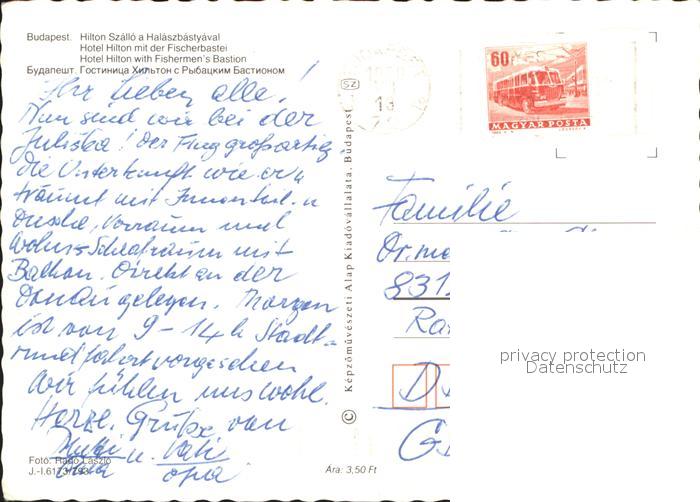 Budapest. Hilton Szálló a Halászbástyával
Hotel Hilton mit der Fischerbastei
Hotel Hilton with Fishermen's Bastion
Будапешт. Гостиница Хильтон с Рыбацким Бастионом
Ihr lieben alle!
Nun sind wir bei der
Juliska! Der Flug großartig
die Unterkunft wie er-
träumt mit Innentoil. u
Dusche, Vorraum und
Wohn-Schlafraum mit
Balkon. Direkt an der
Donau gelegen. Morgen
ist von 9-14h Stadt-
rundfahrt vorgesehen
Wir fühlen uns wohl.
Herzl. Grüße von
u.
Oma opa
Foto: Radó László
J.-I.6173/793
Ára: 3,50 Ft
© Képzőművészeti Alap Kiadóvállalata, Budapest
SZ
60
MAGYAR POSTA
Familie
Dr. me
831
Ra
D
privacy protection
Datenschutz